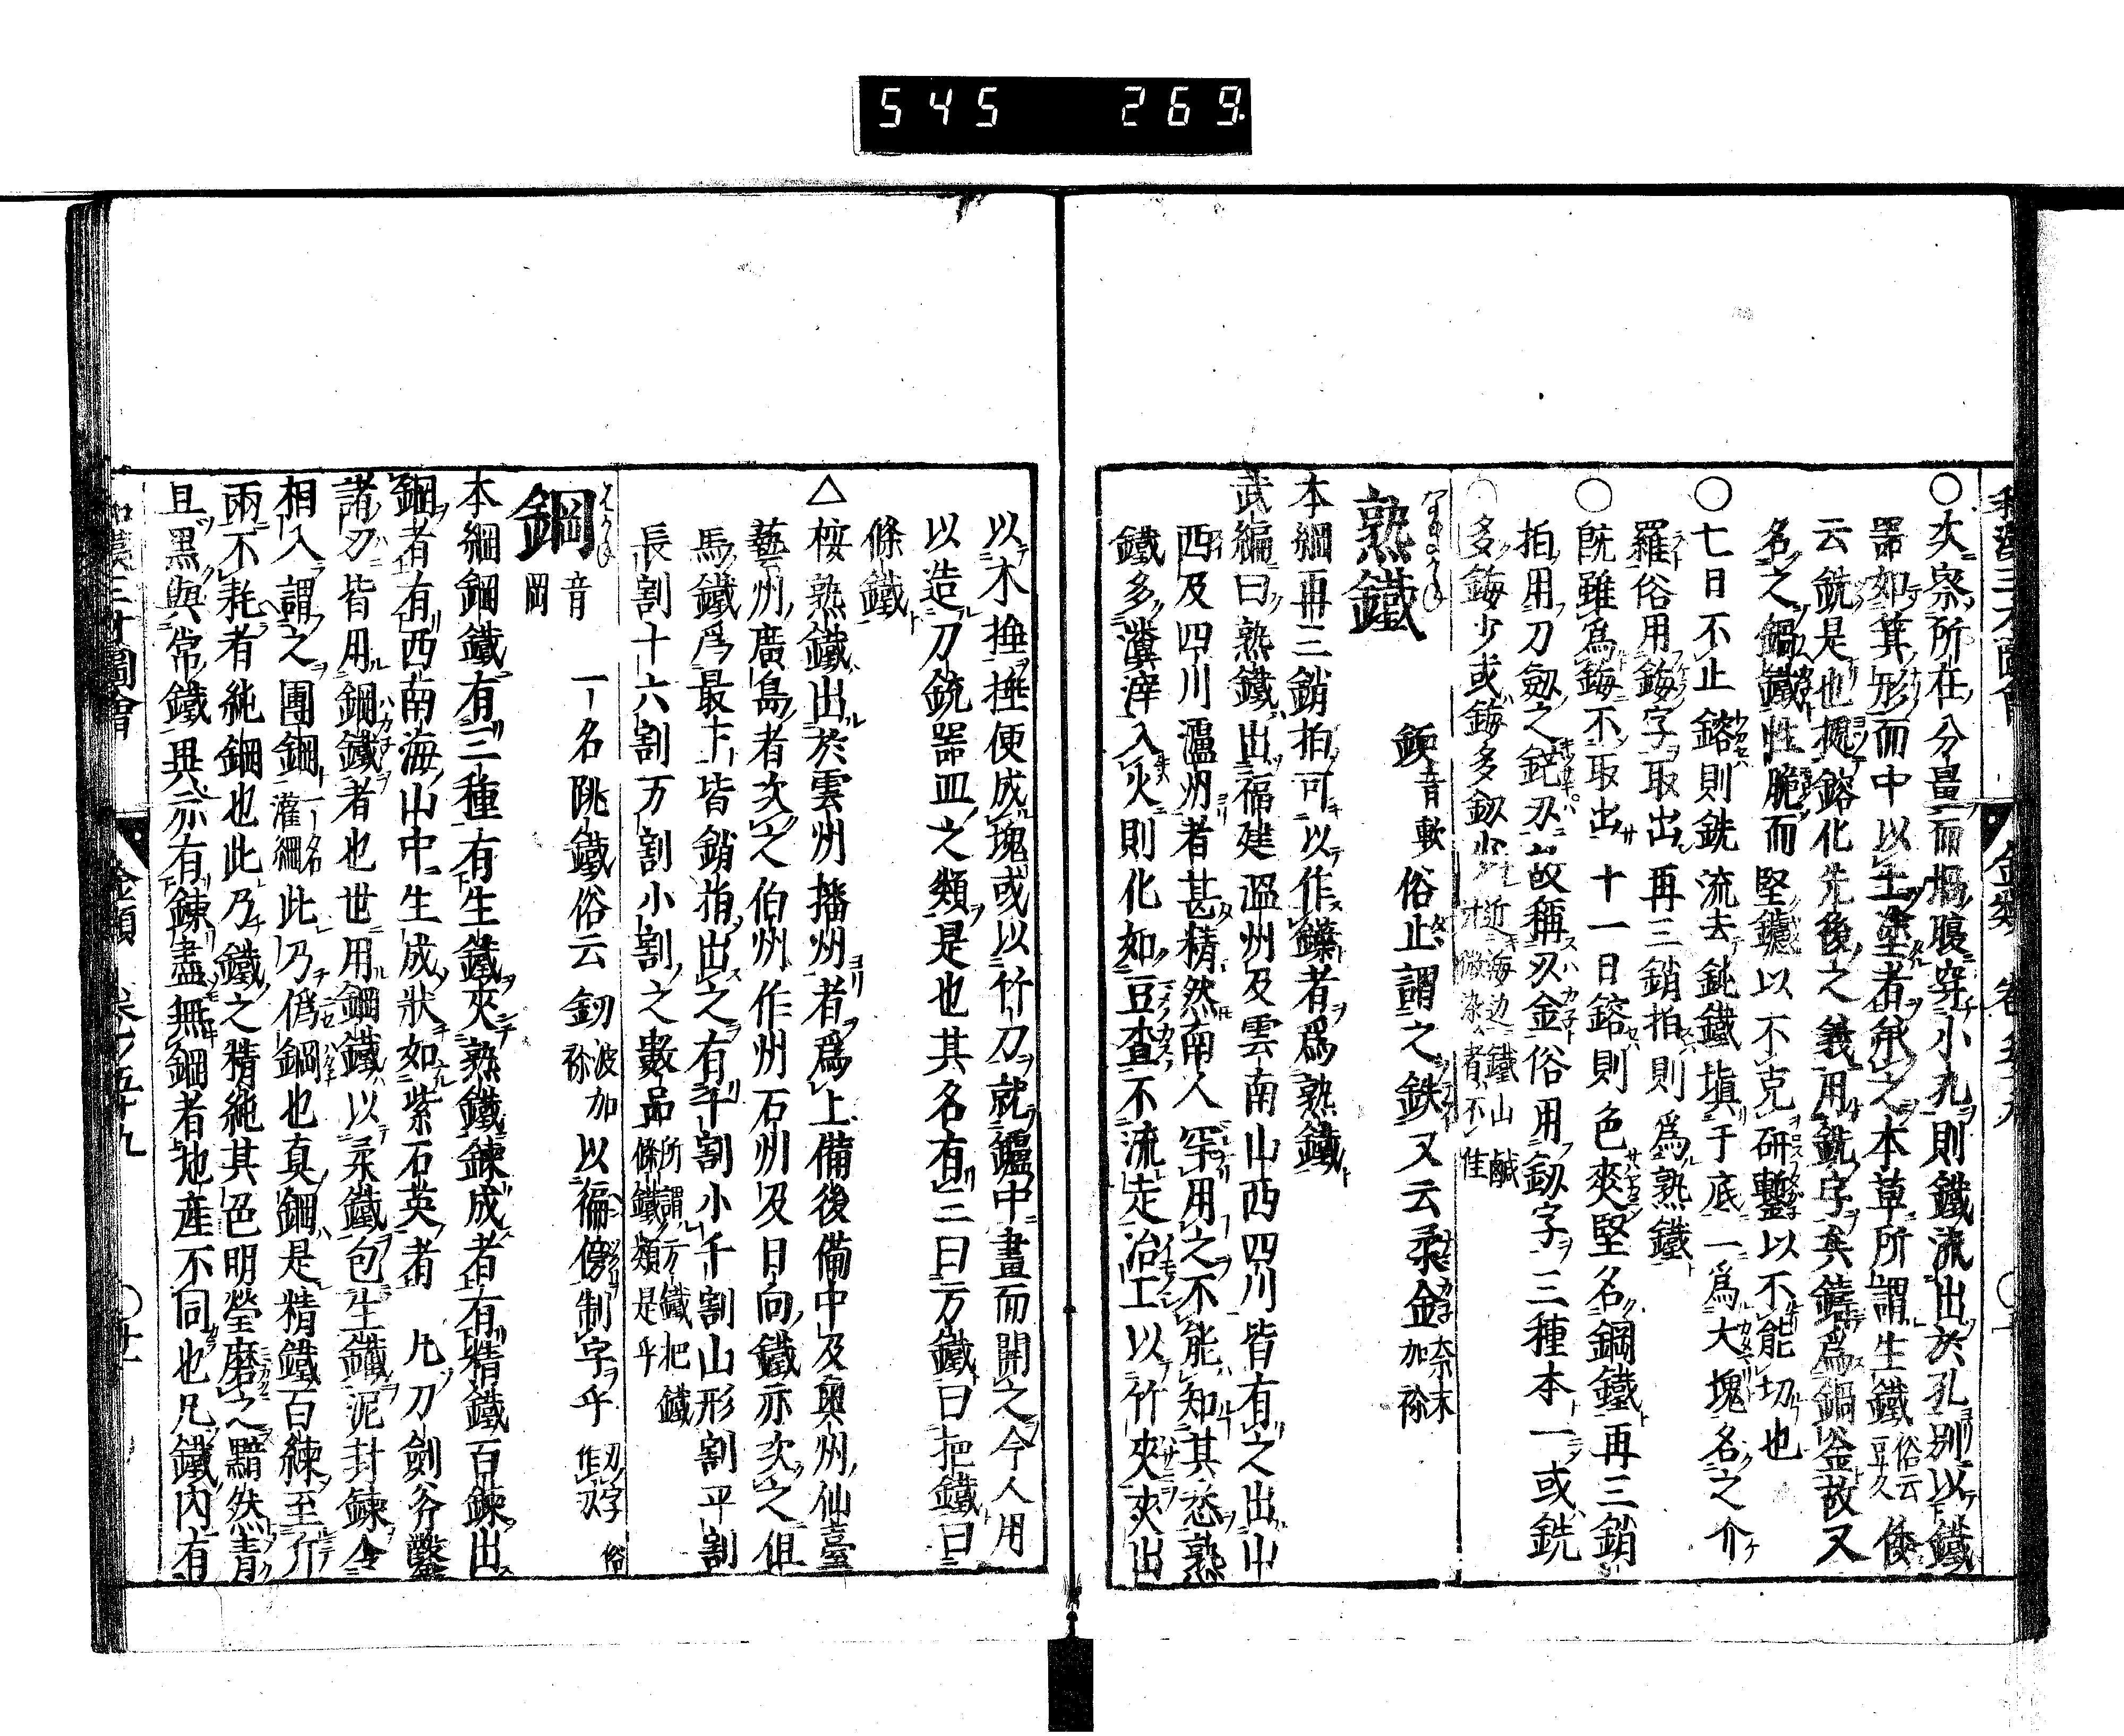 545 269
○次察所在分量而爐腹穿小孔則鐵流出於孔別以鐵
器如箕形而中以土塗者承之本草所謂生鐵俗云豆久倭
云銑是也攪鎔化先後之義用銑字矣鑄爲鍋釜故又
名之鍋鐵性脆而堅鑢以不克研鏨以不能切也
○七日不止鎔則銑流去鈍鐵塡于底一爲大塊名之介
羅俗用𨨞字取出再三銷拍則爲熟鐵
○旣雖爲𨨞不取出十一日鎔則色爽堅名鋼鐵再三銷
拍用刀劔之鋩刃故稱刃金俗用釼字三種本一或銑
多𨨞少或𨨞多釼少
熟鐵
鍒音軟俗止謂之鉄又云柔金奈末加祢
本綱再三銷拍可以作鍱者爲熟鐵
武編曰熟鐵出福建溫州及雲南山西四川皆有之出山
西及四川瀘州者甚精然南人罕用之不能知其悉熟
鐵多瀵滓入火則化如豆査不流走冶工以竹夾夾出
以木捶捶便成塊或以竹刀就鑪中畫而開之今人用
以造刀銃器皿之類是也其名有三曰方鐵曰把鐵曰
條鐵
△桉熟鐵出於雲州播州者爲上備後備中及奧州仙臺
藝州廣島者次之伯州作州石州及日向鐵亦次之但
馬鐵爲最下皆銷指出之有千割小千割山形割平割
長割十六割万割小割之數品所謂方鐵把鐵條鐵類是乎
鋼
音岡 一名跳鐵俗云釼波加祢以徧傍制字乎刃字俗作刄
本綱鋼鐵有三種有生鐵夾熟鐵鍊成者有精鐵百鍊出
鋼者有西南海山中生成狀如紫石英者 凡刀劍斧鑿
諸刃皆用鋼鐵者也世用鋼鐵以柔鐵包生鐵泥封鍊令
相入謂之團鋼一名灌鋼此乃僞鋼也真鋼是精鐵百鍊至斤
兩不耗者純鋼也此乃鐵之精純其色明瑩磨之黯然青
且黒與常鐵異亦有鍊盡無鋼者地産不同也凡鐵內有